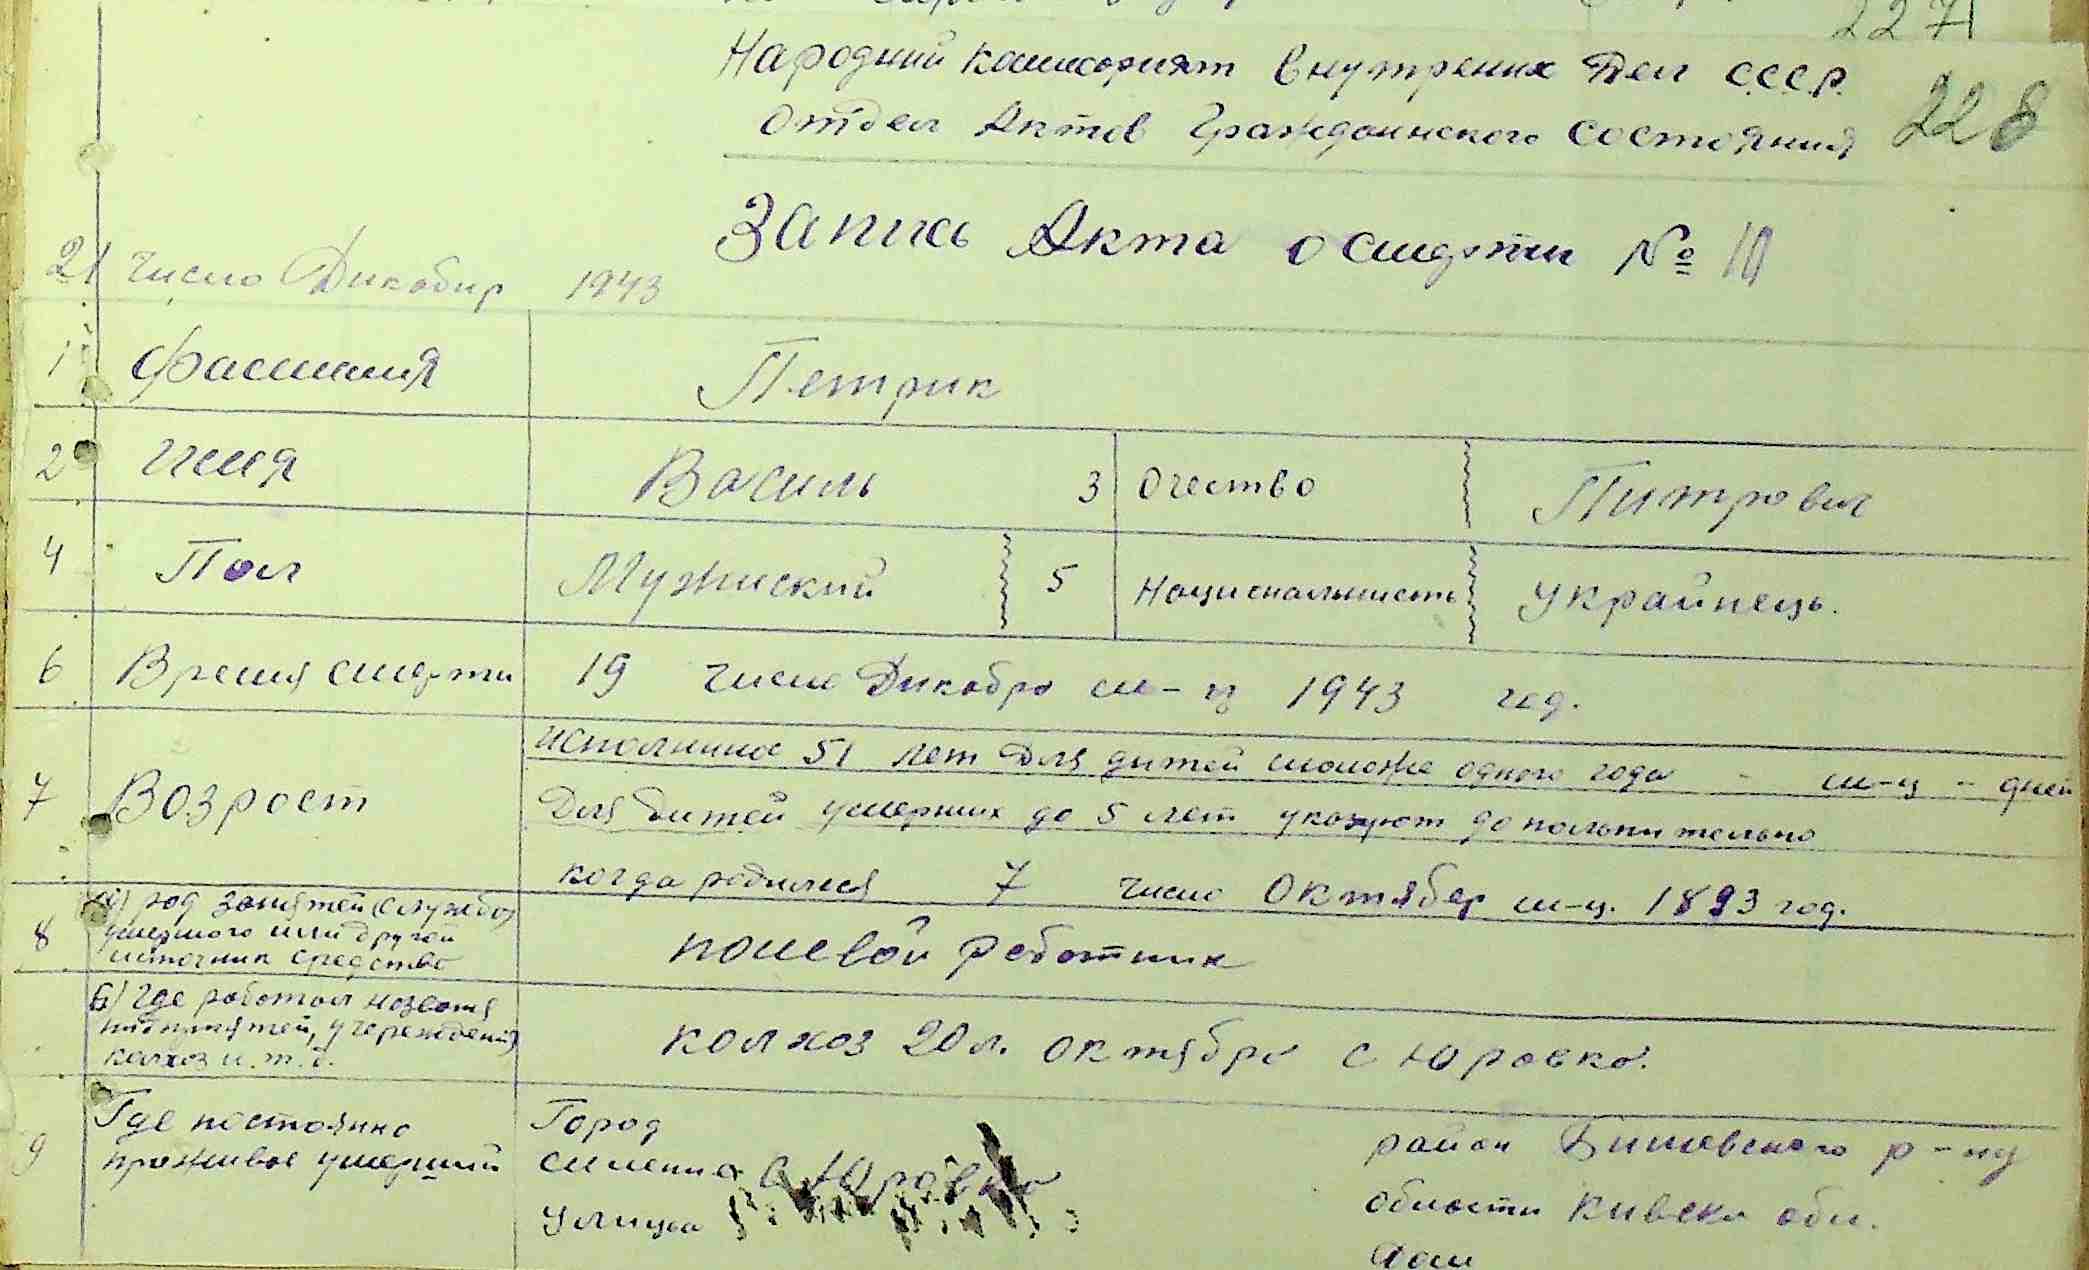 227
Народний Комисорият Внутрених Дел С.С.С.Р.
Отдел Актов Гражданского состояния 228
Запись Акта о смерти № 10
21 число Дикабир 1943
1 Фамилия Петрик
2 Имя Василь 3 Очество Питрович
4 Пол Мужиский 5 Национальность Украйнець.
6 Время смерти 19 число Дикабро м-ц 1943 год.
7 Возрост
Исполнина 51 лет Для дитей моложе одного года - м-ц - дней
Для дитей умерших до 5 лет указуют дополнительно
когда родился 7 число Октябер м-ц. 1893 год.
8 а) род занятей (службо)
умершого или другой
источник средство
полевой работник
б) Где работал названия
колхоз и.т.д.
колхоз 20 л. октябро с Юровко.
9 Где постояно
проживал умерший
Город
силения с Юровко
Улица
район Бишевского р-на
области Кивско обл.
Дом